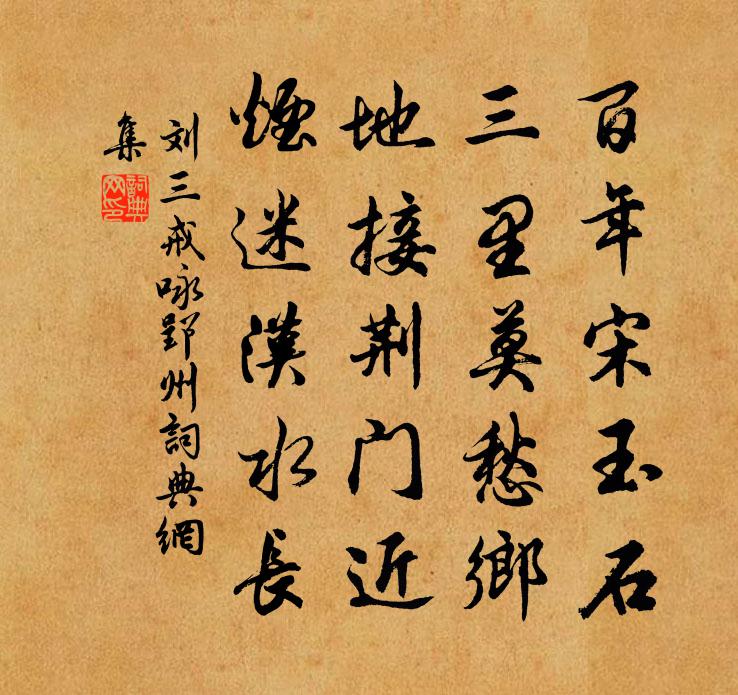 百年宋玉石
三里莫愁鄉
地接荆门近
煙迷漢水長
刘三戒咏郢州詞典網
集
詞典
网印